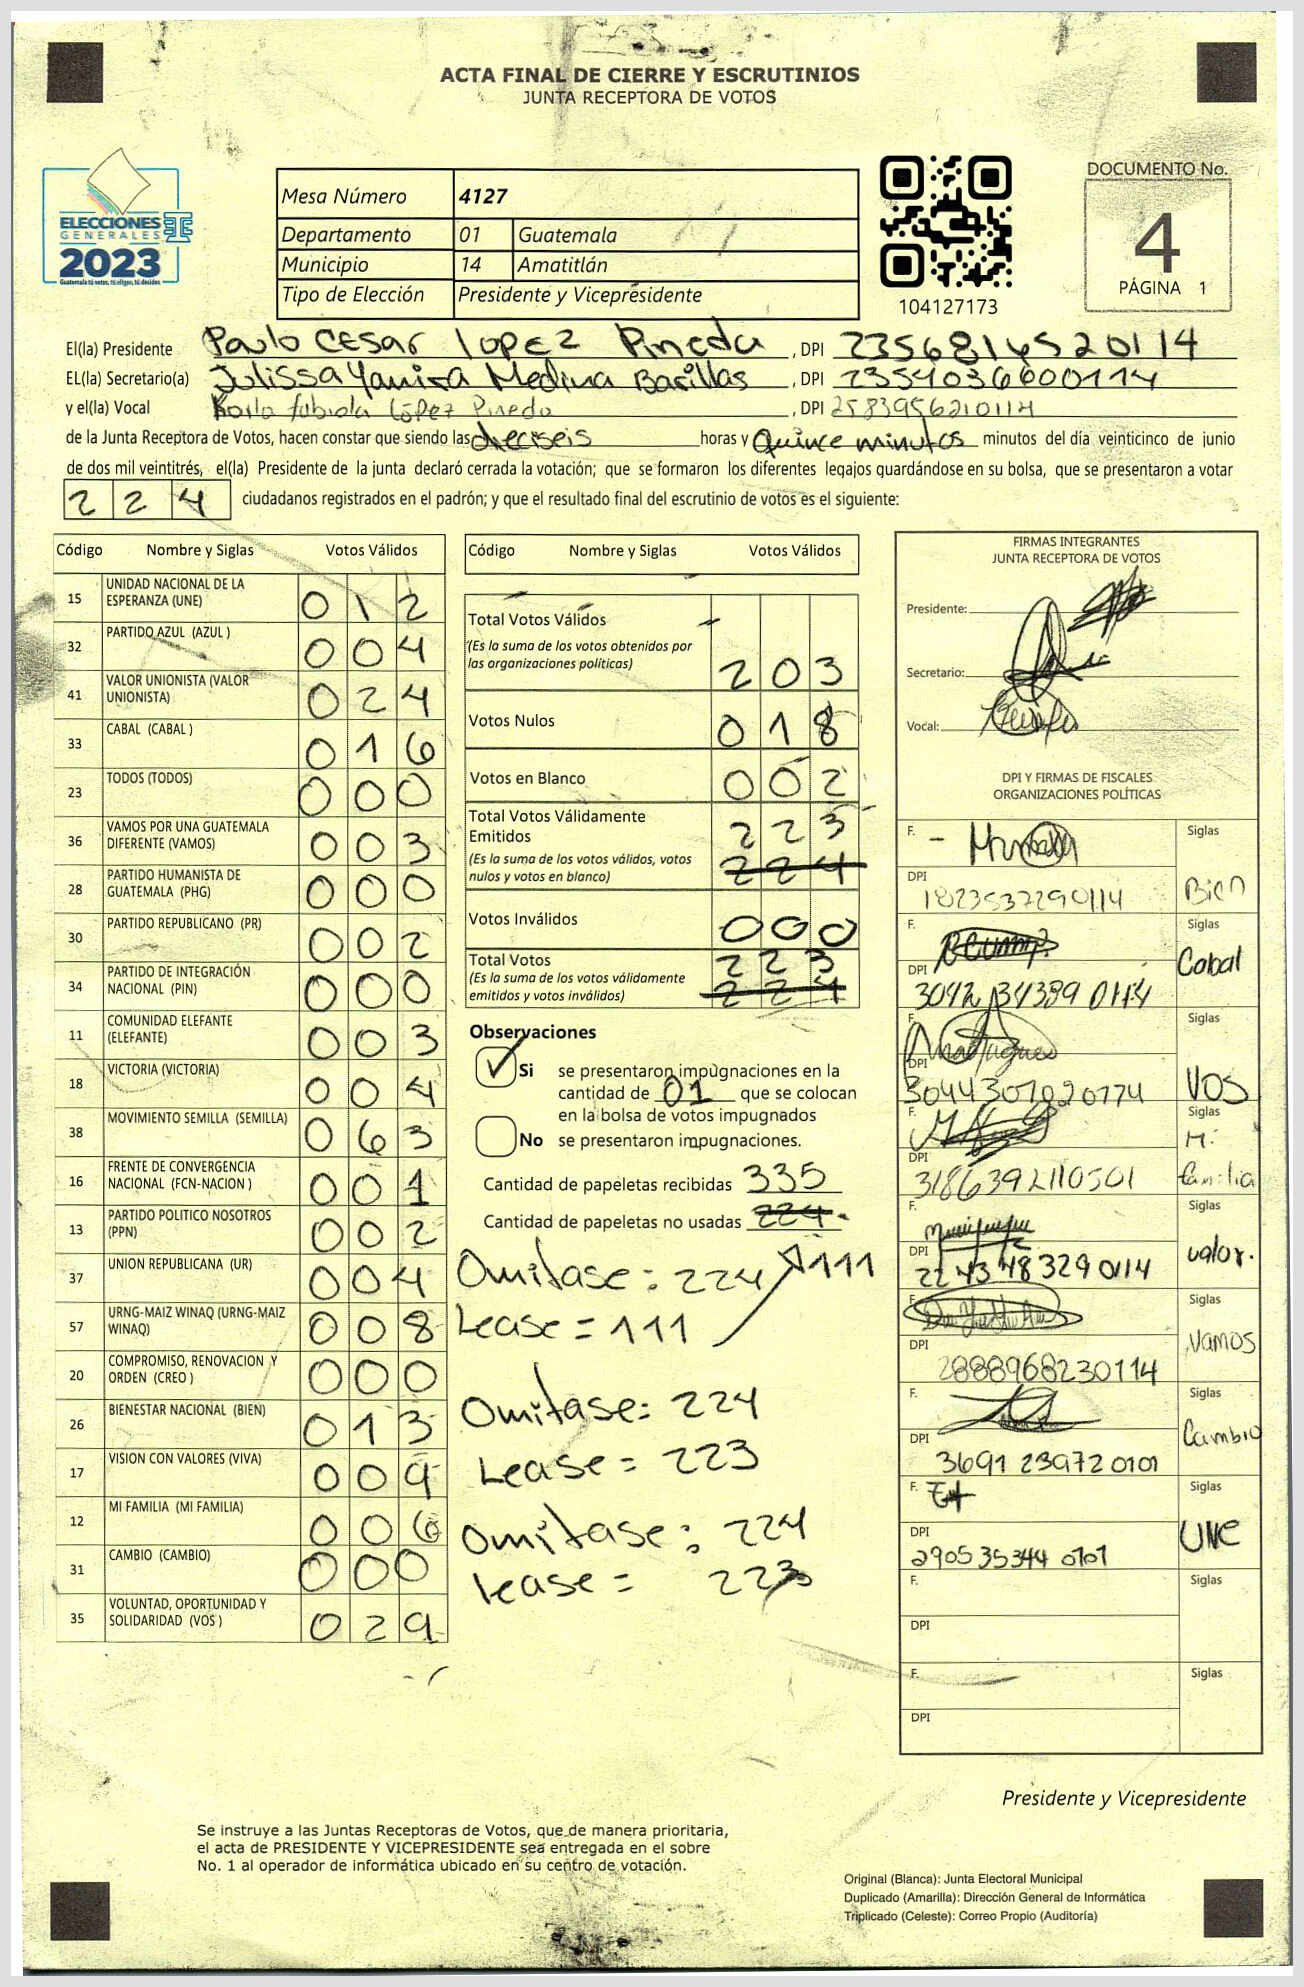 ACTA FINAL DE CIERRE Y ESCRUTINIOS
JUNTA RECEPTORA DE VOTOS
ELECCIONES
GENERALES
2023
Guatemala tú votas, tú eliges, tú decides
Mesa Número 4127
Departamento 01 Guatemala
Municipio 14 Amatitlán
Tipo de Elección Presidente y Vicepresidente
104127173
DOCUMENTO No.
4
PÁGINA 1
El(la) Presidente Paulo Cesar Lopez Pineda , DPI 2356814520114
EL(la) Secretario(a) Julissa Yamira Medina Barillas , DPI 2354036600114
y el(la) Vocal Karla fabiola López Pineda , DPI 2583956210114
de la Junta Receptora de Votos, hacen constar que siendo las dieciseis horas y Quince minutos minutos del día veinticinco de junio
de dos mil veintitrés, el(la) Presidente de la junta declaró cerrada la votación; que se formaron los diferentes legajos guardándose en su bolsa, que se presentaron a votar
224 ciudadanos registrados en el padrón; y que el resultado final del escrutinio de votos es el siguiente:
Código Nombre y Siglas Votos Válidos
15 UNIDAD NACIONAL DE LA ESPERANZA (UNE) 012
32 PARTIDO AZUL (AZUL ) 004
41 VALOR UNIONISTA (VALOR UNIONISTA) 024
33 CABAL (CABAL ) 016
23 TODOS (TODOS) 000
36 VAMOS POR UNA GUATEMALA DIFERENTE (VAMOS) 003
28 PARTIDO HUMANISTA DE GUATEMALA (PHG) 000
30 PARTIDO REPUBLICANO (PR) 002
34 PARTIDO DE INTEGRACIÓN NACIONAL (PIN) 000
11 COMUNIDAD ELEFANTE (ELEFANTE) 003
18 VICTORIA (VICTORIA) 004
38 MOVIMIENTO SEMILLA (SEMILLA) 063
16 FRENTE DE CONVERGENCIA NACIONAL (FCN-NACION ) 001
13 PARTIDO POLITICO NOSOTROS (PPN) 002
37 UNION REPUBLICANA (UR) 004
57 URNG-MAIZ WINAQ (URNG-MAIZ WINAQ) 008
20 COMPROMISO, RENOVACION Y ORDEN (CREO ) 000
26 BIENESTAR NACIONAL (BIEN) 013
17 VISION CON VALORES (VIVA) 009
12 MI FAMILIA (MI FAMILIA) 006
31 CAMBIO (CAMBIO) 000
35 VOLUNTAD, OPORTUNIDAD Y SOLIDARIDAD (VOS ) 029
Código Nombre y Siglas Votos Válidos
Total Votos Válidos 203
(Es la suma de los votos obtenidos por
las organizaciones políticas)
Votos Nulos 018
Votos en Blanco 002
Total Votos Válidamente Emitidos 223
(Es la suma de los votos válidos, votos
nulos y votos en blanco) 224
Votos Inválidos 000
Total Votos 223
(Es la suma de los votos válidamente
emitidos y votos inválidos) 224
Observaciones
Si se presentaron impugnaciones en la
cantidad de 01 que se colocan
en la bolsa de votos impugnados
No se presentaron impugnaciones.
Cantidad de papeletas recibidas 335
Cantidad de papeletas no usadas 224
Omitase: 224 111
Lease = 111
Omitase: 224
Lease = 223
Omitase: 224
Lease = 223
FIRMAS INTEGRANTES
JUNTA RECEPTORA DE VOTOS
Presidente:
Secretario:
Vocal:
DPI Y FIRMAS DE FISCALES
ORGANIZACIONES POLÍTICAS
F. Siglas
DPI 1823537290114 Bien
F. Siglas
DPI 3042 34389 0114 Cabal
F. Siglas
DPI 3044307020774 VOS
F. Siglas
DPI 3186392110501 Mi familia
F. Siglas
DPI 2243483290114 valor.
F. Siglas
DPI 2888968230114 Vamos
F. Siglas
DPI 3691 239720101 Cambio
F. Siglas
DPI 290535344 0101 UNE
F. Siglas
DPI
F. Siglas
DPI
Presidente y Vicepresidente
Se instruye a las Juntas Receptoras de Votos, que de manera prioritaria,
el acta de PRESIDENTE Y VICEPRESIDENTE sea entregada en el sobre
No. 1 al operador de informática ubicado en su centro de votación.
Original (Blanca): Junta Electoral Municipal
Duplicado (Amarilla): Dirección General de Informática
Triplicado (Celeste): Correo Propio (Auditoría)